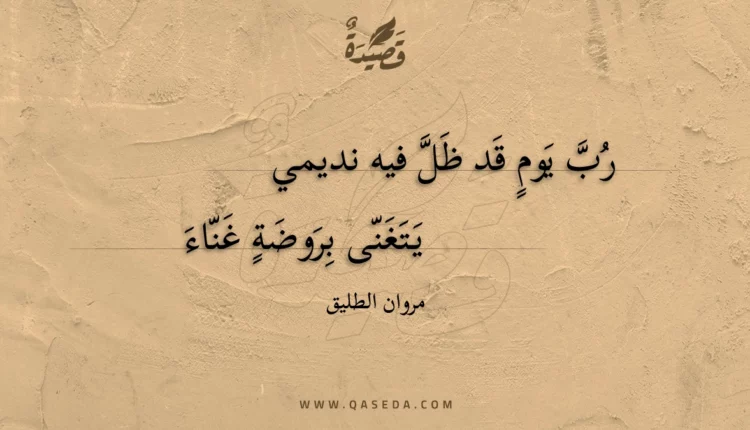 قَصِيدَةٌ
رُبَّ يَومٍ قَد ظَلَّ فيه نديمي
يَتَغَنّى بِرَوضَةٍ غَنّاءَ
مروان الطليق
WWW.QASEDA.COM